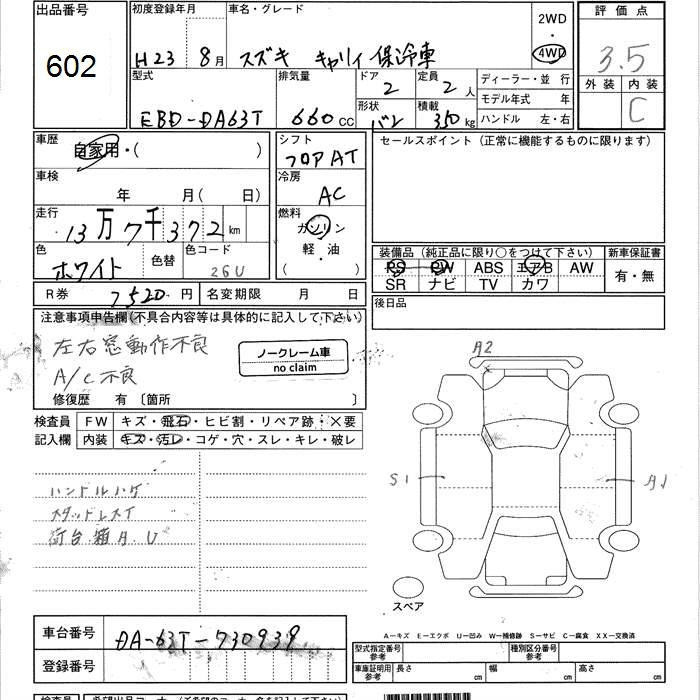 出品番号
602
初度登録年月
H23 8月
車名・グレード
スズキ キャリィ 保冷車
2WD
・
4WD
評価点
3.5
外装 内装
C
型式
EBD-DA63T
排気量
660 cc
ドア
2
定員
2 人
形状
バン
積載
350 kg
ディーラー・並行
モデル年式 年
ハンドル 左・右
車歴
自家用・( )
シフト
フロアAT
セールスポイント(正常に機能するものに限ります)
車検
年 月( 日)
冷房
AC
走行
13万7千372km
燃料
ガソリン
軽・油
( )
色
ホワイト
色替
色コード
26U
装備品(純正品に限り○をつけて下さい)
PS PW ABS エアB AW
SR ナビ TV カワ
新車保証書
有・無
R券 7520円
名変期限 月 日
後日品
注意事項申告欄(不具合内容等は具体的に記入して下さい)
左右窓動作不良
A/C不良
ノークレーム車
no claim
修復歴 有 〔箇所 〕
検査員
記入欄
FW キズ・飛石・ヒビ割・リペア跡・×要
内装 キズ・汚レ・コゲ・穴・スレ・キレ・破レ
ハンドルハゲ
スタッドレス
荷台箱A.U
A2
S1
A1
スペア
A-キズ E-エクボ U-凹み W-補修跡 S-サビ C-腐食 XX-交換済
車台番号 DA-63T-730939
登録番号
型式指定番号
参考
種別区分番号
参考
車庫証明用
参考
長さ cm
幅 cm
高さ cm